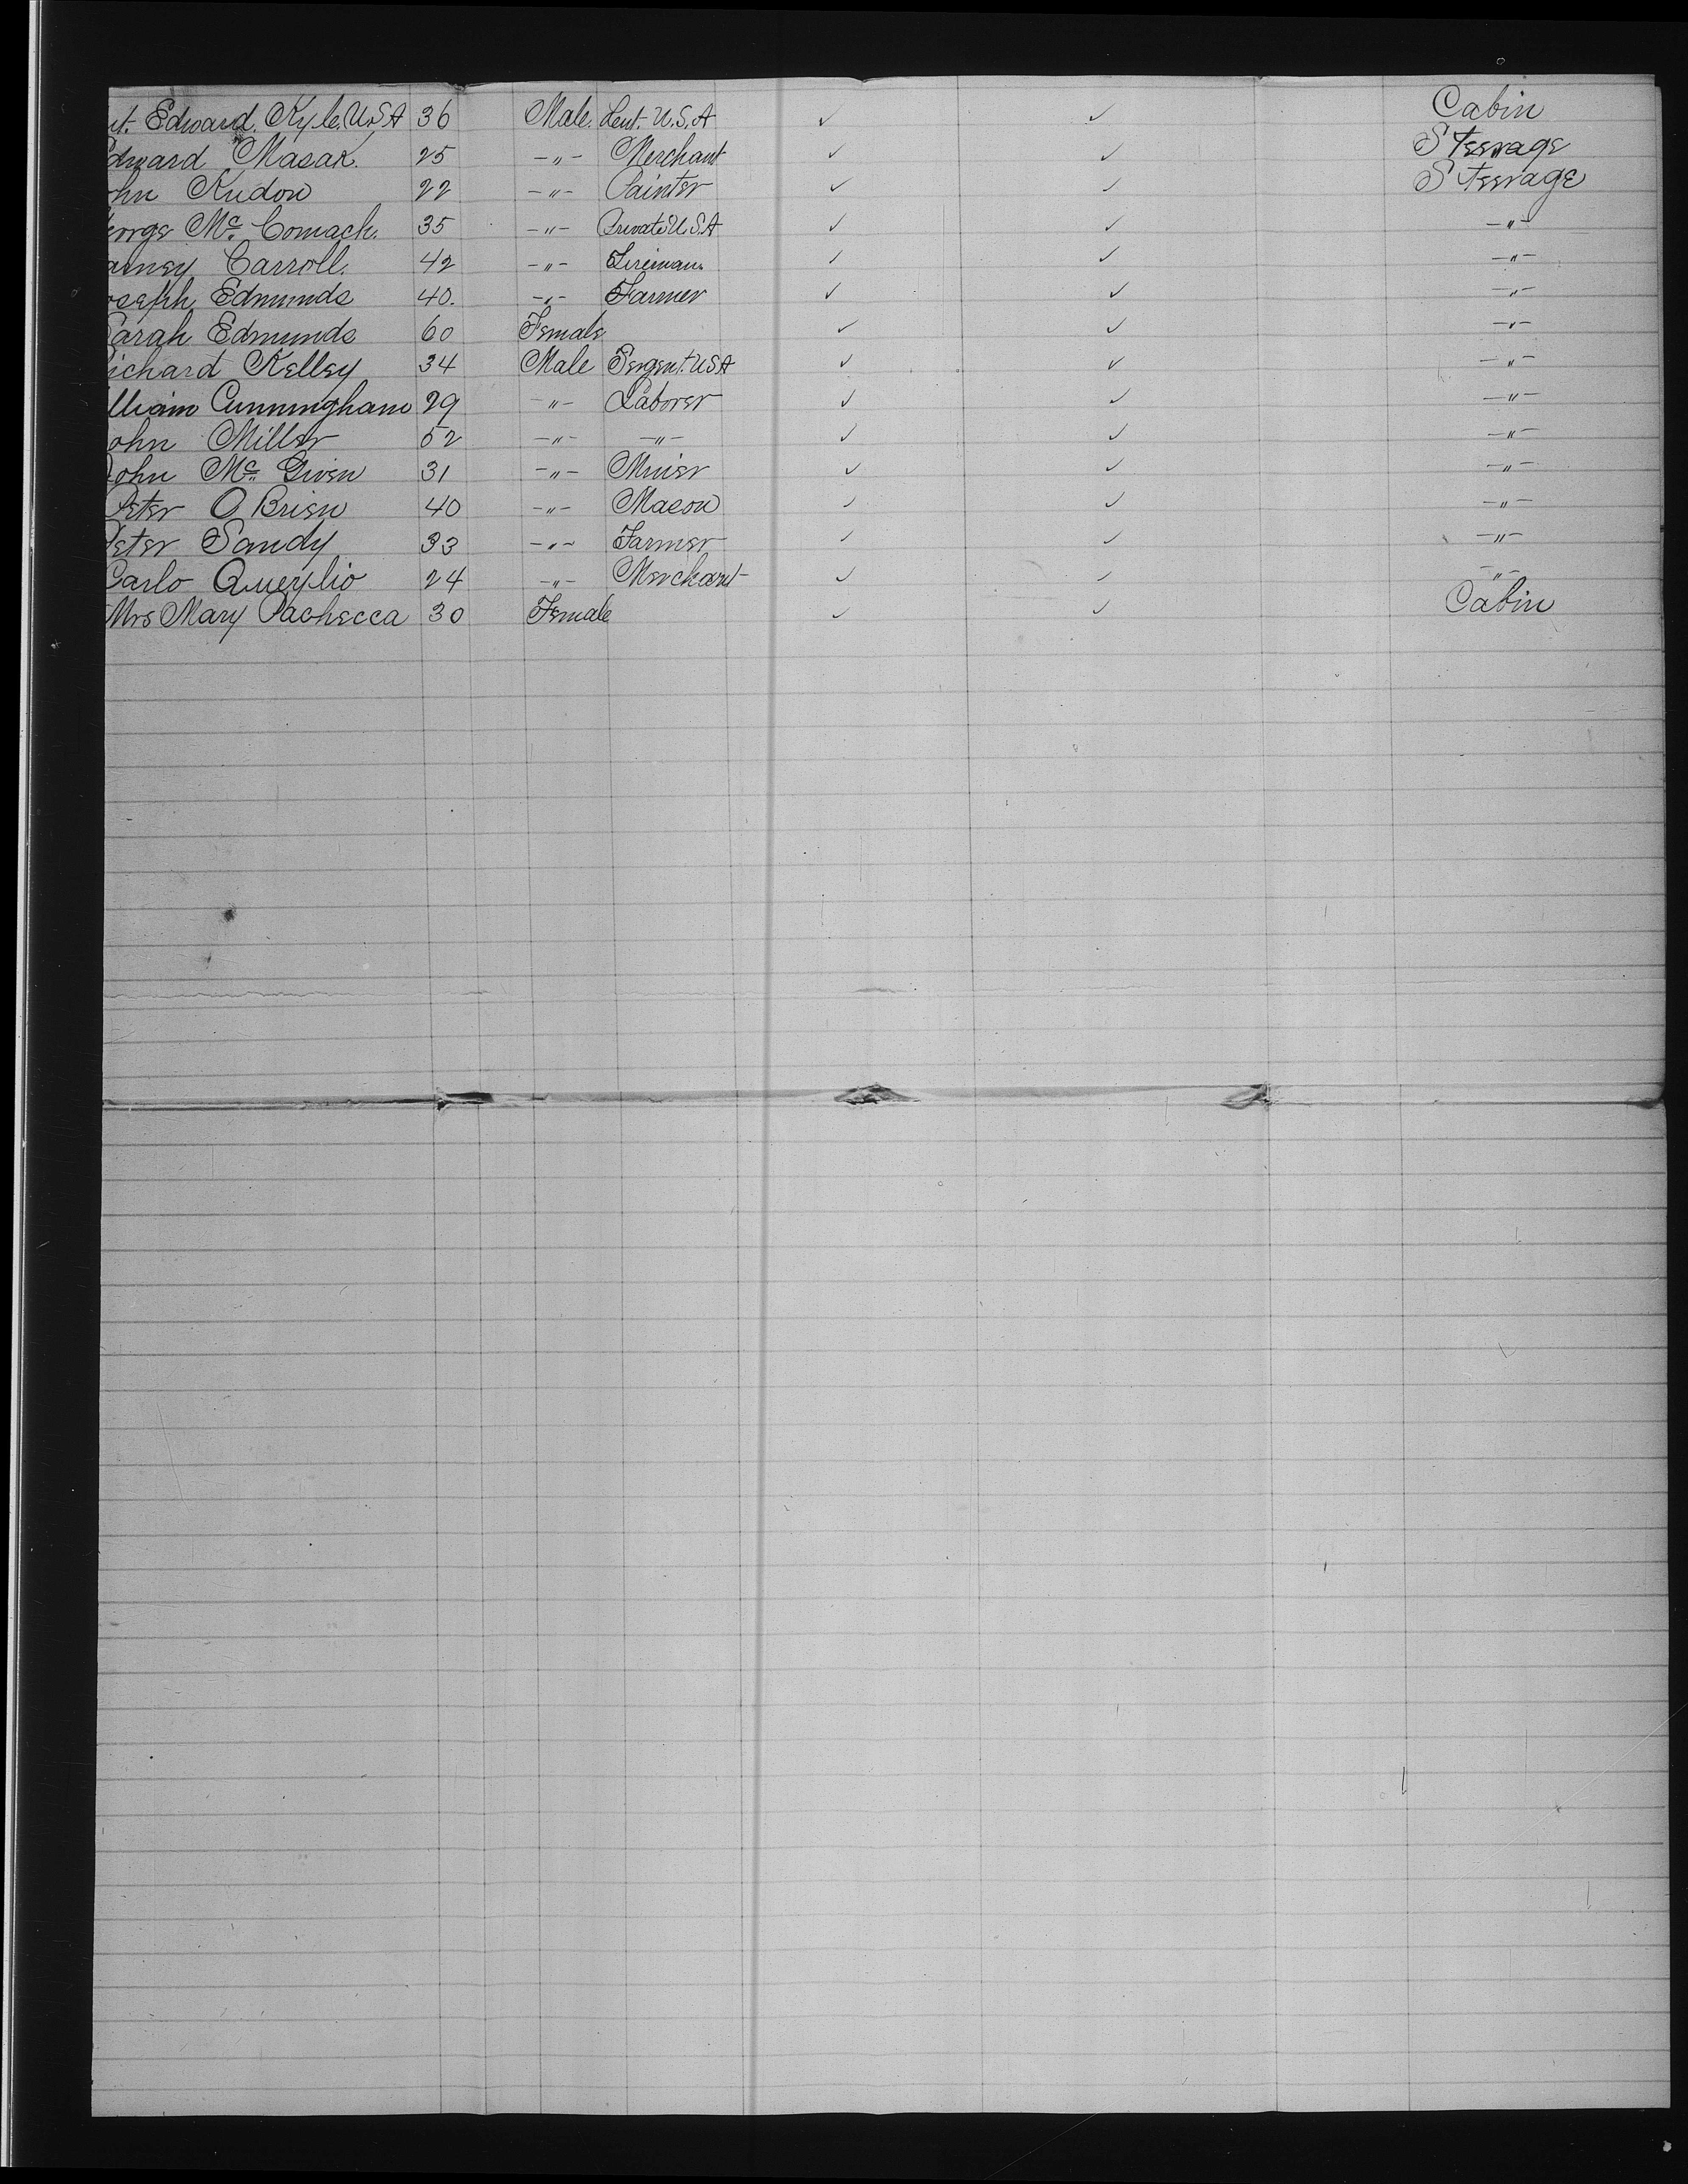 ut. Edward. Kyle. U.S.A 36 Male. Leut. U.S.A ✓ ✓ Cabin
Edward Masak. 25 -"- Merchant ✓ ✓ Steerage
ohn Rudow 22 -"- Painter ✓ ✓ Steerage
eorge Mc. Comach. 35 -"- Private U.S.A ✓ ✓ -"-
arney Carroll. 42 -"- Fireman. ✓ ✓ -"-
oseph Edmunds 40. -"- Farmer ✓ ✓ -"-
Sarah Edmunds 60 Female ✓ ✓ -"-
Richard Kelley 34 Male Sergent. USA ✓ ✓ -"-
illiam Cunningham 29 -"- Laborer ✓ ✓ -"-
John Miller 52 -"- -"- ✓ ✓ -"-
John Mc Given 31 -"- Miner ✓ ✓ -"-
Peter O Brien 40 -"- Mason ✓ ✓ -"-
Peter Sandy 33 -"- Farmer ✓ ✓ -"-
Carlo 24 -"- Merchant ✓ ✓ -"-
Mrs Mary Pachecca 30 Female ✓ ✓ Cabin